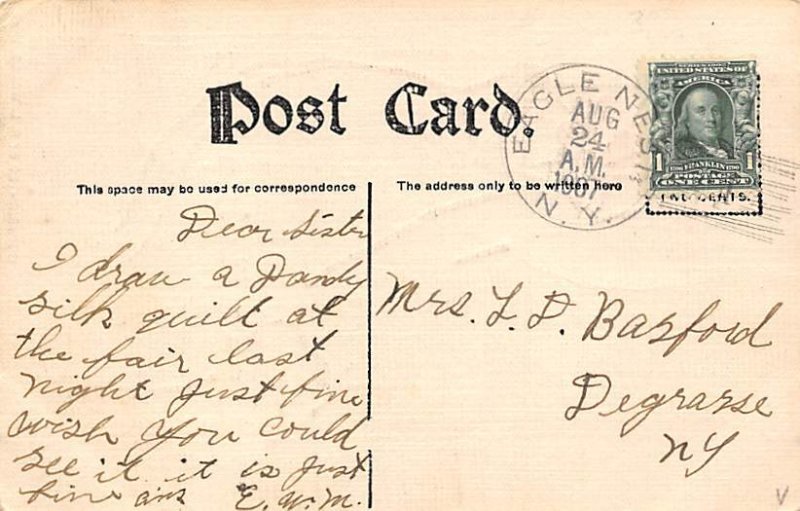 Post Card.
EAGLE NEST
AUG
24
A.M.
1907
N.Y.
SERIES 1902
UNITED STATES OF
AMERICA
1 FRANKLIN 1
POSTAGE
ONE CENT
TWO CENTS.
This space may be used for correspondence
The address only to be written here
Dear Sister
I draw a Dandy
silk quilt at
the fair last
night just fine
wish you could
see it it is just
fine E. W. M.
Mrs. L. D. Basford
Degrasse
NY
V